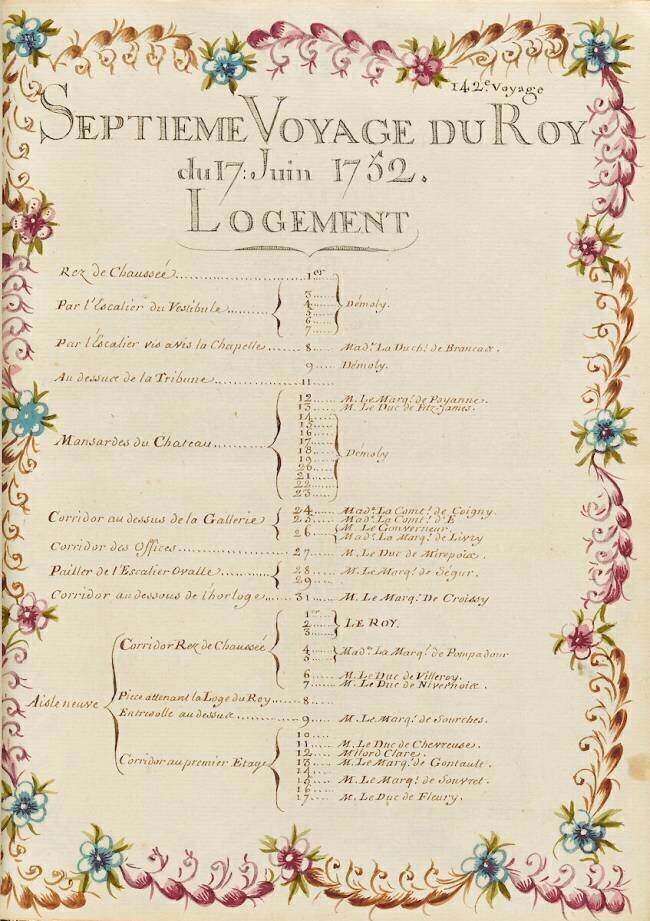 142.e Voyage
SEPTIEME VOYAGE DU ROY
du 17: Juin 1752.
LOGEMENT
Rez de Chaussée .......... 1er
3
Par l'Escalier du Vestibule .......... 4 ...... Démoly.
5
6
7
Par l'Escalier vis avis la Chapelle .......... 8 ...... Made. La Duche. de Brancas.
9 ...... Démoly.
Au dessus de la Tribune .......... 11
12 ...... M. Le Marq.s de Poyanne.
13 ...... M. Le Duc de Fitz-James.
14
15
16
17
Mansardes du Chateau .......... 18 ...... Démoly
19
20
21
22
23
24 ...... Made. La Comte. de Coigny.
Corridor au dessus de la Gallerie 25 ...... Made. La Comte. d'E
26 ...... M. Le Gouverneur.
Made. La Marq.e de Livry
Corridor des Offices .......... 27 ...... M. Le Duc de Mirepoix.
Pailler de l'Escalier Ovalle .......... 28 ...... M. Le Marq.s de Ségur.
29
Corridor au dessous de lhorloge ...... 31 ...... M. Le Marq.s De Croissy
Aisle neuve
1er
2 ...... LE ROY.
3
Corridor Rez de Chaussée
4 ...... Made. La Marq.e de Pompadour
5
6 ...... M. Le Duc de Villeroy.
7 ...... M. Le Duc de Nivernois.
Piece attenant la Loge du Roy ...... 8
Entresolle au dessus .......... 9 ...... M. Le Marq.s de Sourches.
10
11 ...... M. Le Duc de Chevreuse.
12 ...... Milord Clare.
Corridor au premier Etage 13 ...... M. Le Marq.s de Gontault.
14
15 ...... M. Le Marq.s de Souvret.
16
17 ...... M. Le Duc de Fleury.